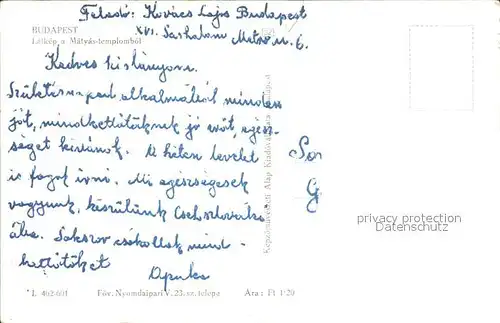 Feladó: Kovács Lajos Budapest
BUDAPEST XVI. Sashalom Metró u. 6.
Látkép a Mátyás-templomból
Kedves kislányom.
Születésnapod alkalmából minden
jót, mindkettőtöknek jó erőt, egész-
séget kívánok. A héten levelet
is fogok írni. Mi egészségesek
vagyunk, készülünk Csehszlová
ába. Sokszor csókollak mind-
kettőtöket
Apuka
Képzőművészeti Alap Kiadóvállalata, Budapest
privacy protection
Datenschutz
L 462-601 Főv. Nyomdaipari V. 23. sz. telepe Ára: Ft 1·20